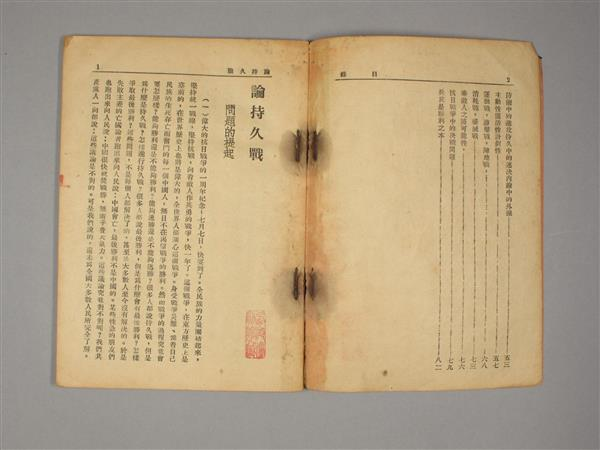 2
目錄
防禦中的進攻持久中的速決內線中的外線……五三
主動性靈活性計劃性……五七
運動戰，游擊戰，陣地戰，……六八
消耗戰，殲滅戰……七三
乘敵人之隙可能性，……七六
抗日戰爭中的決戰問題……七九
兵民是勝利之本……八二
論持久戰
1
論持久戰
問題的提起
（一）偉大的抗日戰爭的一周年紀念—七月七日，快要到了。全民族的力量團結起來，
堅持統一戰線，堅持抗戰，向着敵人作英勇的戰爭，快一年了。這個戰爭，在東方歷史上是
空前的，在世界歷史上也將是偉大的，全世界人都關心這個戰爭。身受戰爭災難、爲着自己
民族的生死存亡而奮鬥的每一個中國人，無日不在渴望戰爭的勝利。然而戰爭的過程究竟會
要怎麼樣？能夠勝利還是不能夠勝利？能夠速勝還是不能夠速勝？很多人都說持久戰，但是
爲什麼是持久戰？怎樣進行持久戰？很多人都說最後勝利，但是爲什麼會有最後勝利？怎樣
爭取最後勝利？這些問題，不是每個人都解決了的，甚至是大多數人至今沒有解決的。於是
失敗主義的亡國論者跑出來向人民說：中國會亡，最後勝利不是中國的。某些性急的朋友們
也跑出來向人民說：中國很快就能戰勝，無需乎費大氣力。這些議論究竟對不對呢？我們共
產黨人一向都說：這些議論是不對的。可是我們說的，還未爲全國大多數人民所完全了解。